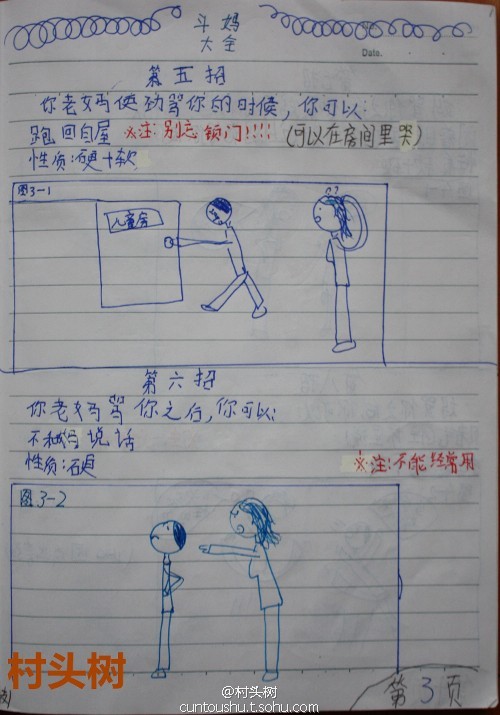 斗妈
大全
Date.
第五招
你老妈使劲骂你的时候，你可以：
跑回自屋 ※注：别忘锁门！！！！（可以在房间里哭）
性质：硬+软
图3-1
儿童房
第六招
你老妈骂你之后，你可以：
不和妈说话
性质：硬
※注：不能经常用
图3-2
村头树
第3页
@村头树
cuntoushu.t.sohu.com